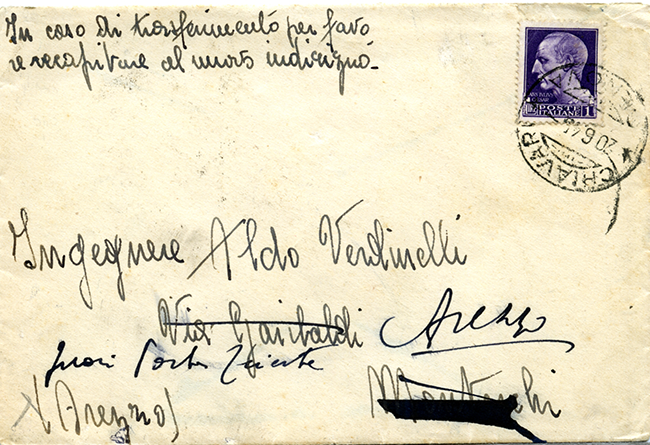 In caso di trasferimento per favo
re recapitare al nuovo indirizzo.
POSTE
ITALIANE
1
CHIAVARI
GENOVA
20.6.4
Ingegnere Aldo Verdinelli
Via Garibaldi
Arezzo
fuori Porta Trieste
Monterchi
(Arezzo)